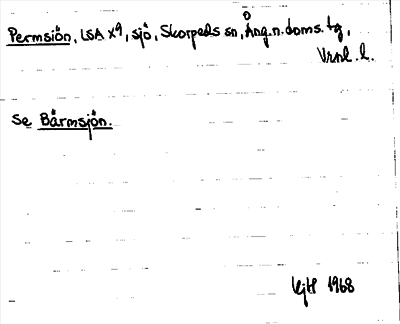 Permsiön, LSA X9, sjö, Skorpeds sn, Ång.n.doms.tg,
Vrnl. l.
Se Bärmsjön.
1968